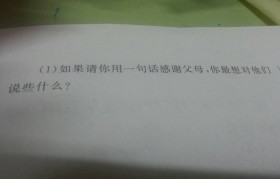 (1)如果请你用一句话感谢父母,你最想对他们
说些什么?